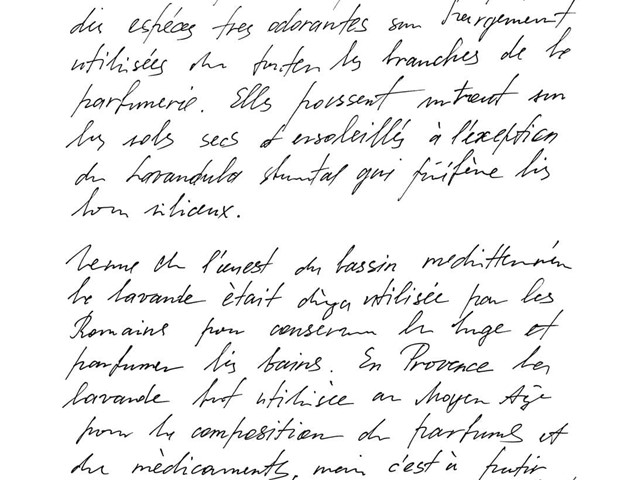 des espéces tres odorantes son largement
utilisées dans toutes les branches de la
parfumerie. Elles poussent surtout sur
les sols secs et ensoleillés à l'exception
du Lavandula qui préfère les
sols siliceux.
Venue de l'ouest du bassin
la lavande ètait déja utilisée par les
Romains pour conserver le linge et
parfumer les bains. En Provence la
lavande fut utilisèe au Moyen Age
pour la composition de parfums et
de mèdicaments, mais c'est à partir